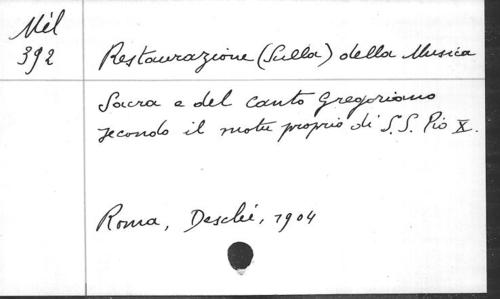 Mél
392
Restaurazione (Sulla) della Musica
Sacra e del canto gregoriano
secondo il motu proprio di S.S. Pio X.
Roma, Desclé, 1904